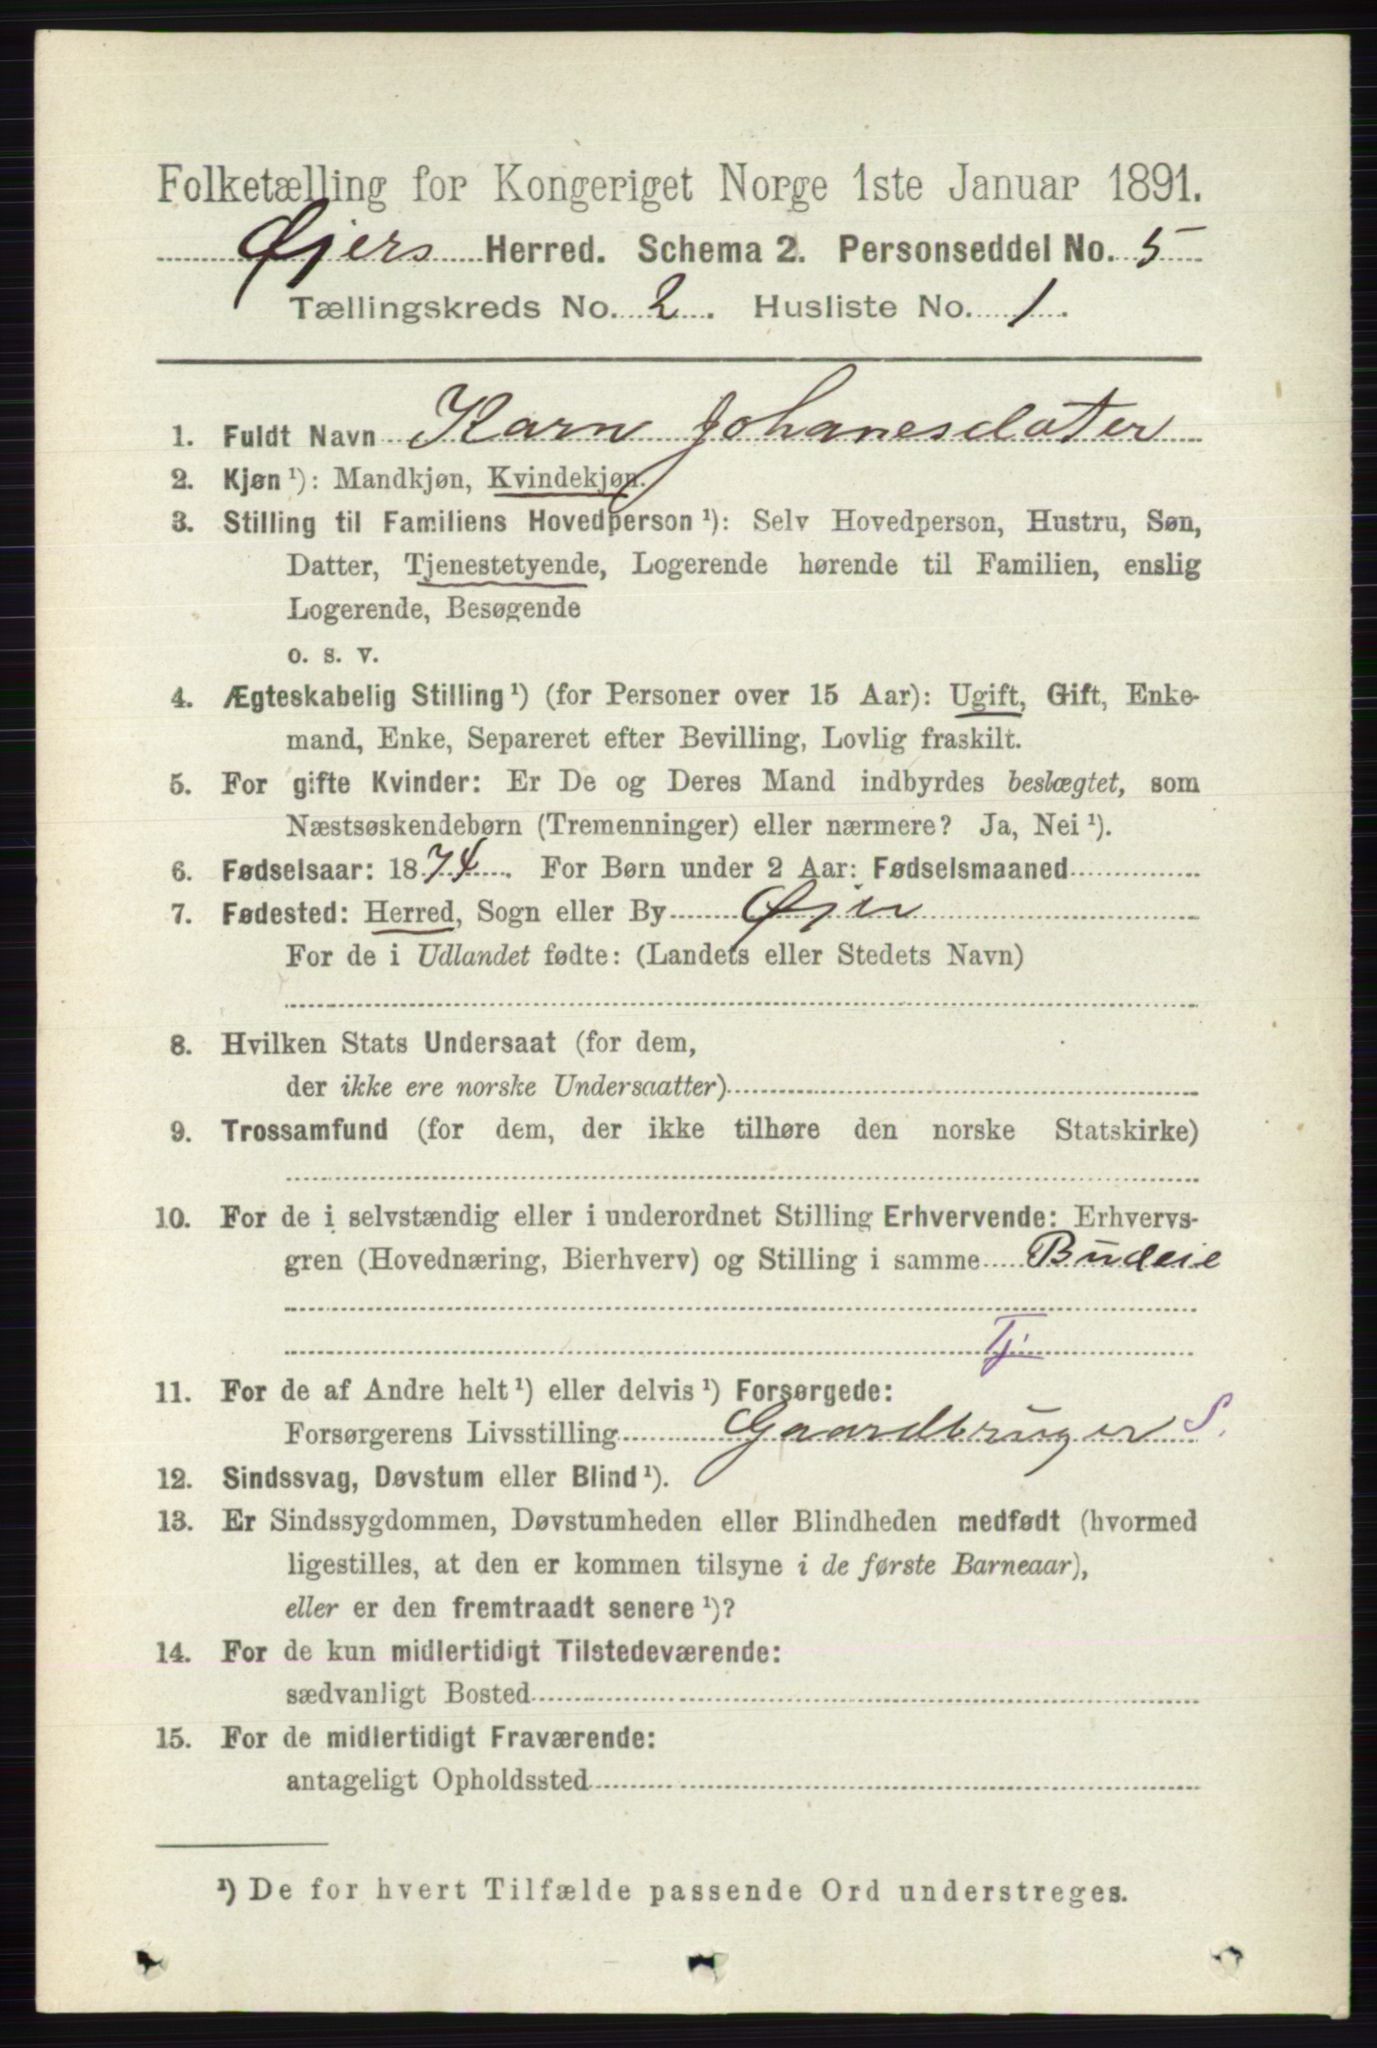 Folketælling for Kongeriget Norge 1ste Januar 1891.
Øjers Herred. Schema 2. Personseddel No. 5
Tællingskreds No. 2. Husliste No. 1.
1. Fuldt Navn Karn Johanesdater
2. Kjøn ¹): Mandkjøn, Kvindekjøn.
3. Stilling til Familiens Hovedperson ¹): Selv Hovedperson, Hustru, Søn,
Datter, Tjenestetyende, Logerende hørende til Familien, enslig
Logerende, Besøgende
o. s. v.
4. Ægteskabelig Stilling ¹) (for Personer over 15 Aar): Ugift, Gift, Enke-
mand, Enke, Separeret efter Bevilling, Lovlig fraskilt.
5. For gifte Kvinder: Er De og Deres Mand indbyrdes beslægtet, som
Næstsøskendebørn (Tremenninger) eller nærmere? Ja, Nei ¹).
6. Fødselsaar: 1874. For Børn under 2 Aar: Fødselsmaaned
7. Fødested: Herred, Sogn eller By Øjer
For de i Udlandet fødte: (Landets eller Stedets Navn)
8. Hvilken Stats Undersaat (for dem,
der ikke ere norske Undersaatter)
9. Trossamfund (for dem, der ikke tilhøre den norske Statskirke)
10. For de i selvstændig eller i underordnet Stilling Erhvervende: Erhvervs-
gren (Hovednæring, Bierhverv) og Stilling i samme Budeie
Tj.
11. For de af Andre helt ¹) eller delvis ¹) Forsørgede:
Forsørgerens Livsstilling Gaardbruger S.
12. Sindssvag, Døvstum eller Blind ¹).
13. Er Sindssygdommen, Døvstumheden eller Blindheden medfødt (hvormed
ligestilles, at den er kommen tilsyne i de første Barneaar),
eller er den fremtraadt senere ¹)?
14. For de kun midlertidigt Tilstedeværende:
sædvanligt Bosted
15. For de midlertidigt Fraværende:
antageligt Opholdssted
¹) De for hvert Tilfælde passende Ord understreges.